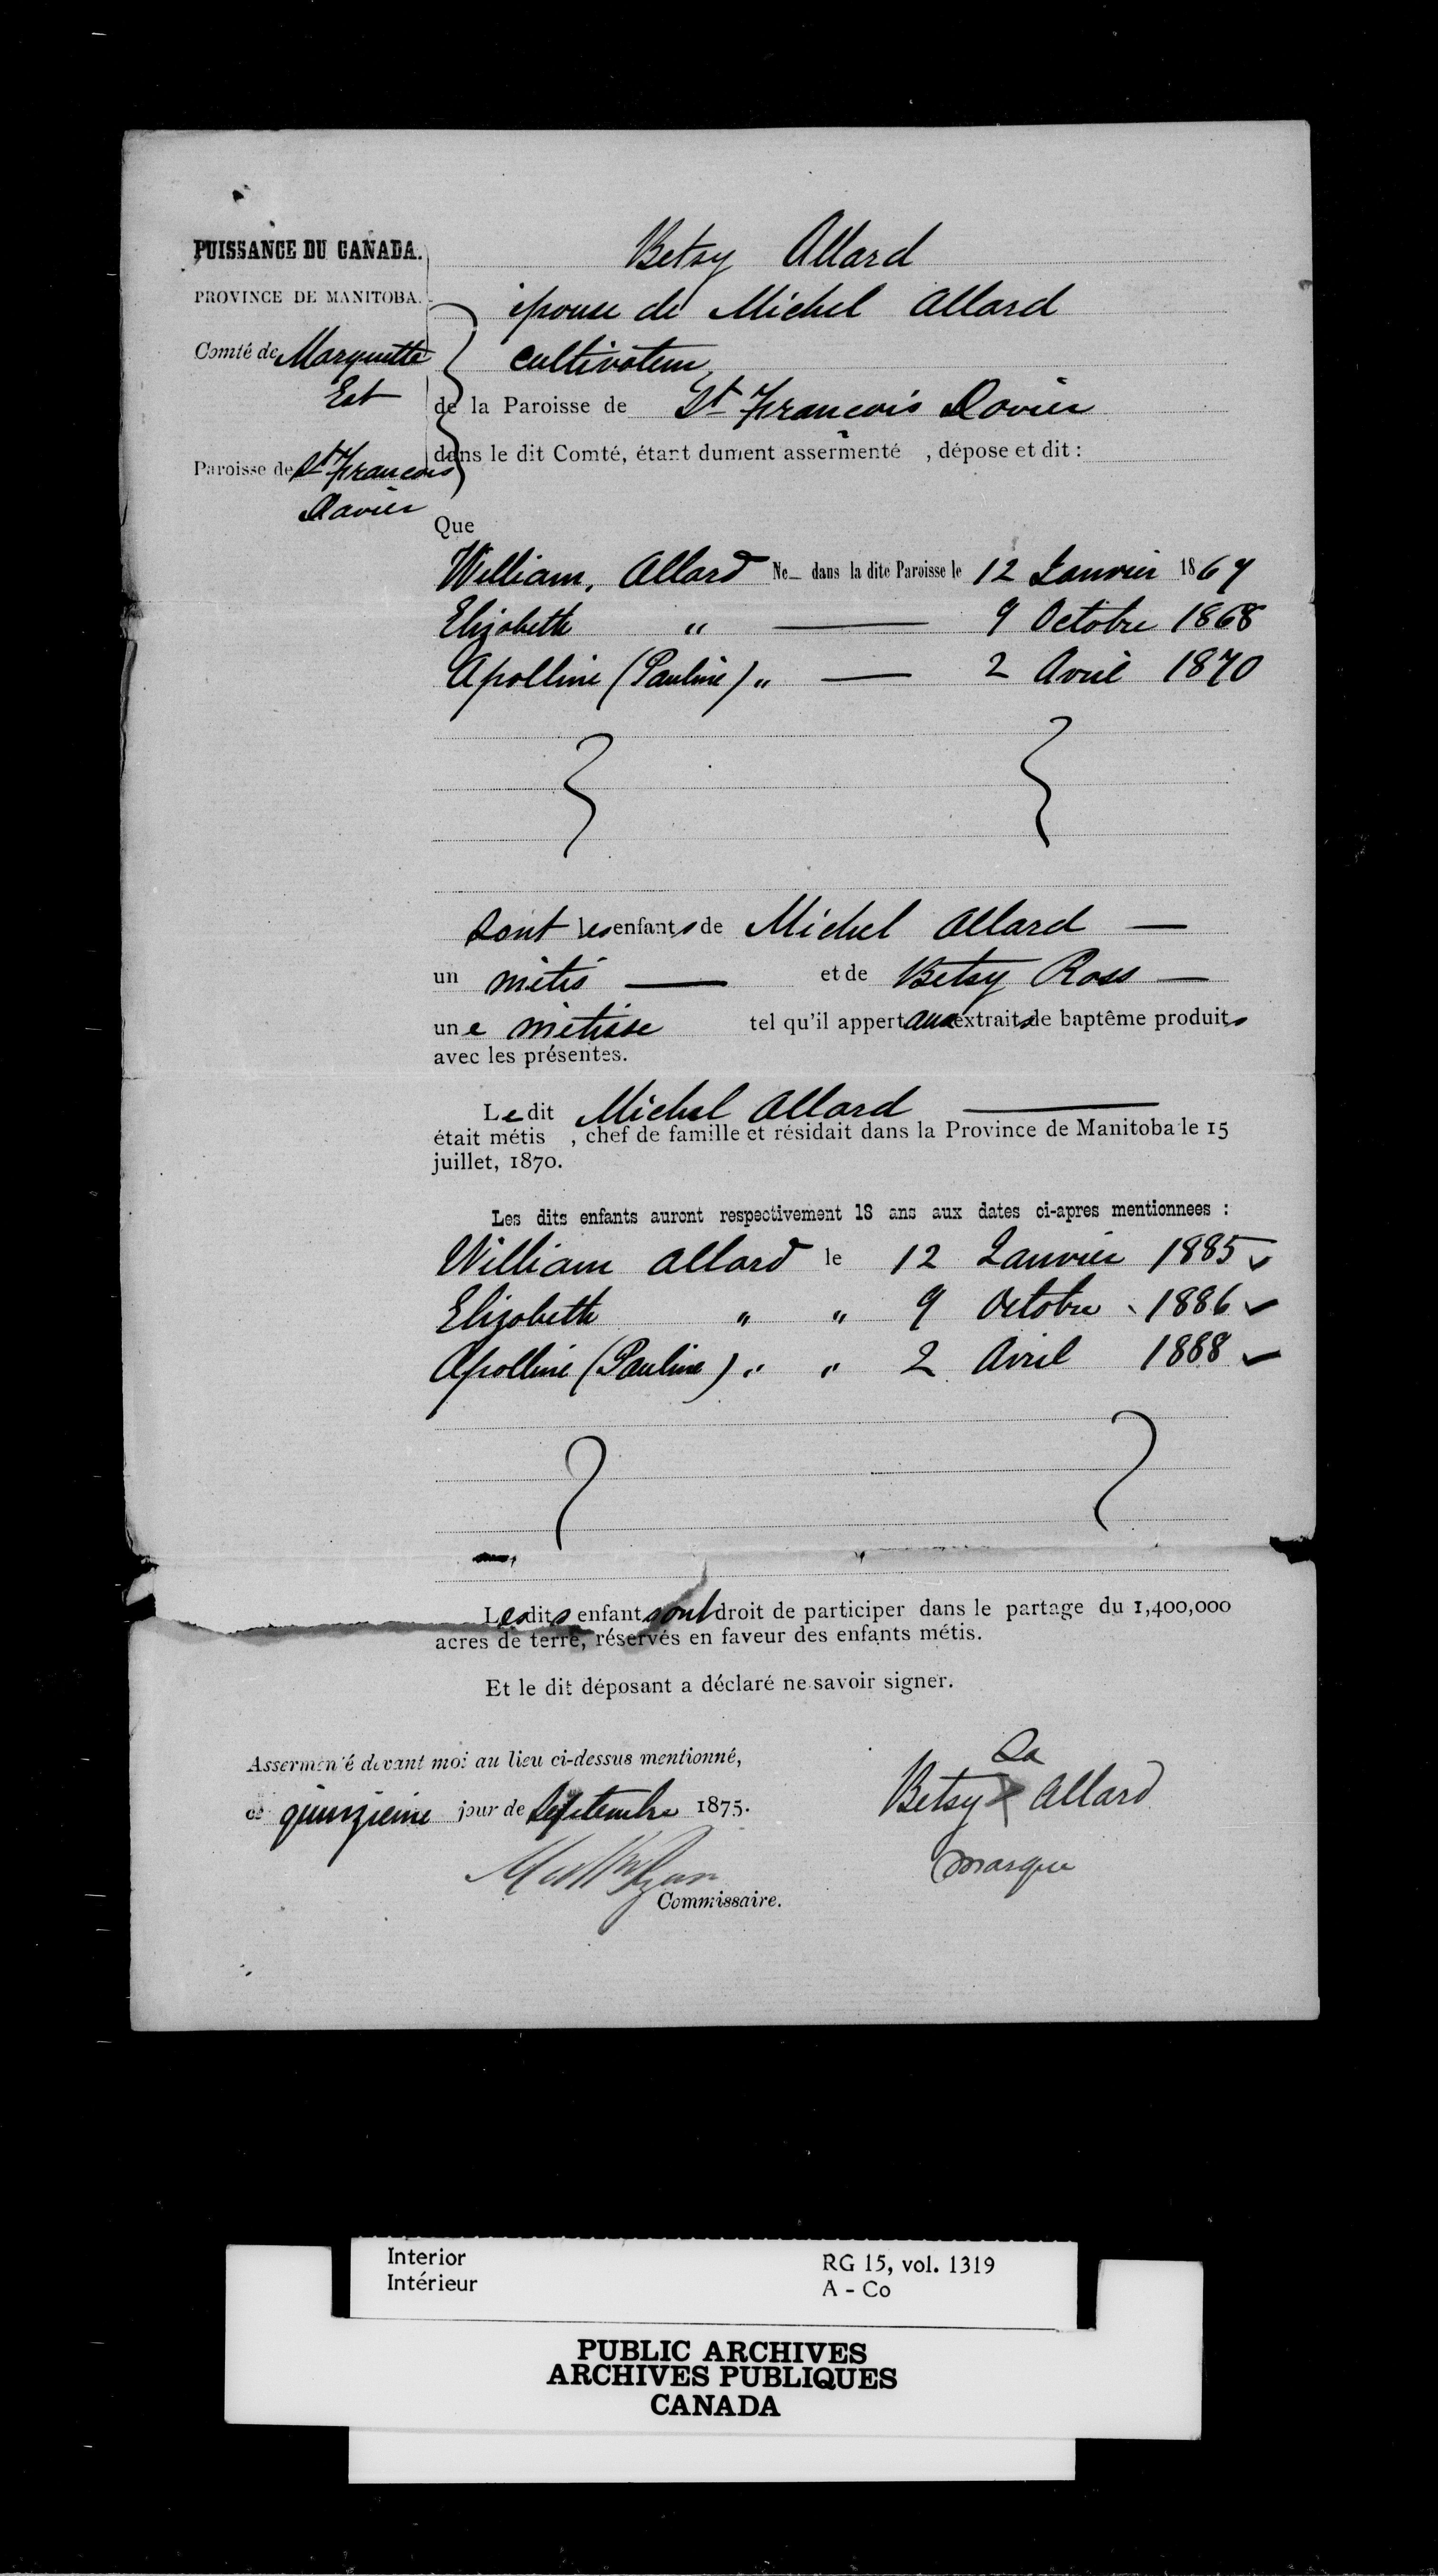 PUISSANCE DU CANADA.
PROVINCE DE MANITOBA.
Comté de Marquette
Est
Paroisse de St François
Xavier
Betsy Allard
épouse de Michel Allard
cultivateur,
de la Paroisse de St François Xavier
dans le dit Comté, étant dument assermenté , dépose et dit :
Que
William, Allard Ne— dans la dite Paroisse le 12 Janvier 1867
Elizabeth " — 9 Octobre 1868
Apolline (Pauline) " — 2 Avril 1870
Sont les enfants de Michel Allard —
un métis — et de Betsy Ross —
une métisse tel qu'il appert aux extraits de baptême produits
avec les présentes.
Le dit Michel Allard —
était métis , chef de famille et résidait dans la Province de Manitoba le 15
juillet, 1870.
Les dits enfants auront respectivement 18 ans aux dates ci-apres mentionnees :
William Allard le 12 Janvier 1885 ✓
Elizabeth " " 9 Octobre 1886 ✓
Apolline (Pauline) " " 2 Avril 1888 ✓
Les dits enfants ont droit de participer dans le partage du 1,400,000
acres de terre, réservés en faveur des enfants métis.
Et le dit déposant a déclaré ne savoir signer.
Assermenté devant moi au lieu ci-dessus mentionné,
ce quinzieme jour de Septembre 1875.
Commissaire.
Sa
Betsy X Allard
marque
Interior
Intérieur
RG 15, vol. 1319
A - Co
PUBLIC ARCHIVES
ARCHIVES PUBLIQUES
CANADA